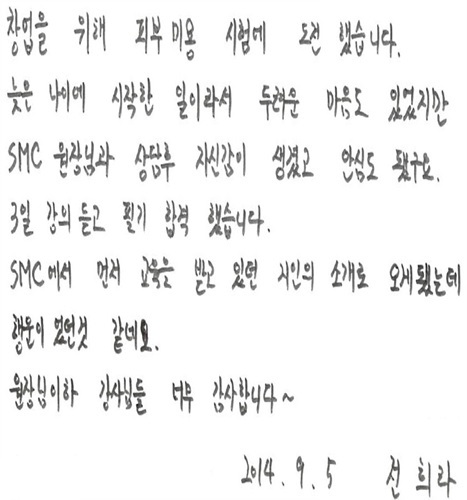 창업을 위해 피부미용 시험에 도전 했습니다.
늦은 나이에 시작한 일이라서 두려운 마음도 있었지만
SMC 원장님과 상담후 자신감이 생겼고 안심도 됐구요.
3일 강의 듣고 필기 합격 했습니다.
SMC에서 먼저 교육을 받고 있던 지인의 소개로 오게됐는데
행운이 었던것 같네요.
원장님이하 강사님들 너무 감사합니다~
2014. 9. 5 전 희라